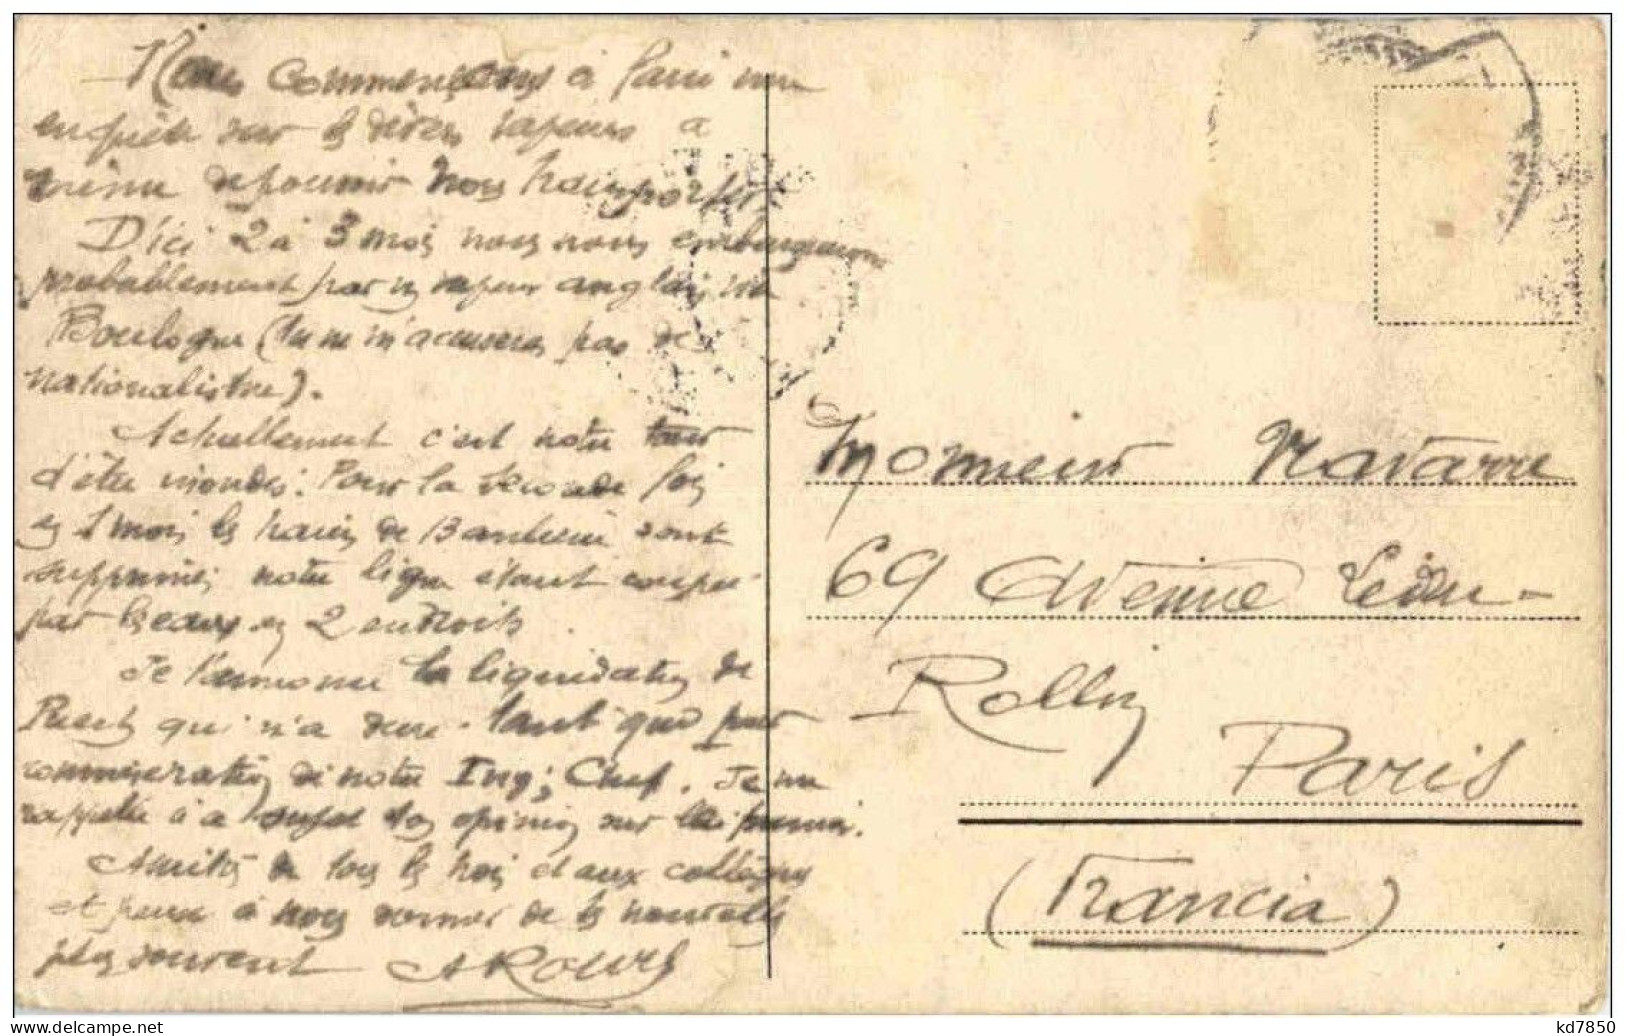 Nous commençons à faire une
enquête sur les divers vapeurs à
même de pouvoir nous transporter.
D'ici 2 à 3 mois nous nous embarquerons
probablement par un vapeur anglais, via
Boulogne (tu ne m'accuseras pas de
nationalisme).
Actuellement c'est notre tour
d'être inondés: Pour la seconde fois
en 1 mois les trains de Banlieue sont
supprimés, notre ligne étant coupée
par les eaux en 2 endroits.
Je t'annonce la liquidation de
qui n'a duré tant que par
commisération de notre Ing; Chef. Je me
rappelle à ce sujet ton opinion sur
Amitiés à tous les trois et aux collègues
et pense à nous donner de tes nouvelles
plus souvent
Monsieur Navarre
69 Avenue Ledru-
Rollin
Paris
(Francia)
www.delcampe.net
kd7850